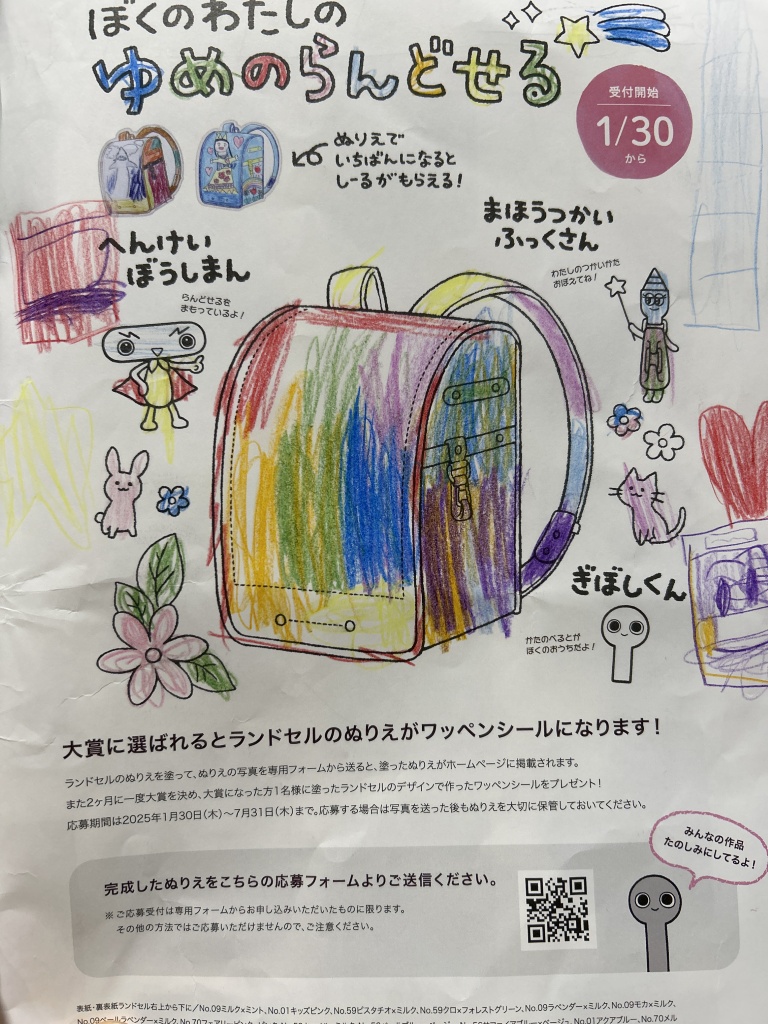 ぼくのわたしの
ゆめのらんどせる
受付開始
1/30
から
ぬりえで
いちばんになると
しーるがもらえる！
まほうつかい
ふっくさん
わたしのつかいかた
おぼえてね！
へんけい
ぼうしまん
らんどせるを
まもっているよ！
ぎぼしくん
かたのべるとが
ぼくのおうちだよ！
大賞に選ばれるとランドセルのぬりえがワッペンシールになります！
ランドセルのぬりえを塗って、ぬりえの写真を専用フォームから送ると、塗ったぬりえがホームページに掲載されます。
また2ヶ月に一度大賞を決め、大賞になった方1名様に塗ったランドセルのデザインで作ったワッペンシールをプレゼント！
応募期間は2025年1月30日（木）〜7月31日（木）まで。応募する場合は写真を送った後もぬりえを大切に保管しておいてください。
みんなの作品
たのしみにしてるよ！
完成したぬりえをこちらの応募フォームよりご送信ください。
※ご応募受付は専用フォームからお申し込みいただいたものに限ります。
その他の方法ではご応募いただけませんので、ご注意ください。
表紙・裏表紙ランドセル右上から下に／No.09ミルク×ミント、No.01キッズピンク、No.59ピスタチオ×ミルク、No.59クロ×フォレストグリーン、No.09ラベンダー×ミルク、No.09モカ×ミルク、